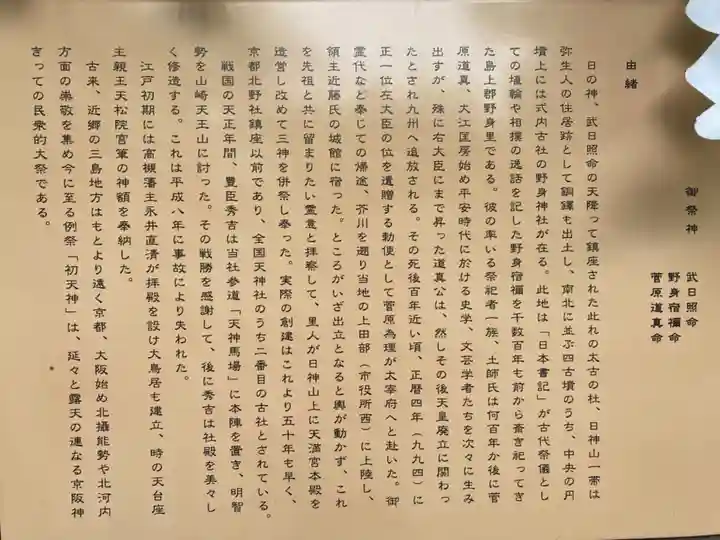 御祭神　武日照命
野身宿禰命
菅原道真命
由緒
日の神、武日照命の天降って鎮座された此れの太古の杜、日神山一帯は
弥生人の住居跡として銅鐸も出土し、南北に並ぶ四古墳のうち、中央の円
墳上には式内古社の野身神社が在る。此地は「日本書記」が古代祭儀とし
ての埴輪や相撲の逸話を記した野身宿禰を千数百年も前から斎き祀ってき
た島上郡野身里である。彼の率いる祭祀者一族、土師氏は何百年か後に菅
原道真、大江匡房始め平安時代に於ける史学、文芸学者たちを次々に生み
出すが、殊に右大臣にまで昇った道真公は、然しその後天皇廃立に関わっ
たとされ九州へ追放される。その死後百年近い頃、正暦四年（九九四）に
正一位左大臣の位を遺贈する勅使として菅原為理が太宰府へと赴いた。御
霊代など奉じての帰途、芥川を遡り当地の上田部（市役所西）に上陸し、
領主近藤氏の城館に宿った。ところがいざ出立となると輿が動かず、これ
を先祖と共に留まりたい霊意と拝察して、里人が日神山上に天満宮本殿を
造営し改めて三神を併祭し奉った。実際の創建はこれより五十年も早く、
京都北野社鎮座以前であり、全国天神社のうち二番目の古社とされている。
戦国の天正年間、豊臣秀吉は当社参道「天神馬場」に本陣を置き、明智
勢を山崎天王山に討った。その戦勝を感謝して、後に秀吉は社殿を美々し
く修造する。これは平成八年に事故により失われた。
江戸初期には高槻藩主永井直清が拝殿を設け大鳥居も建立、時の天台座
主親王天松院宮筆の神額を奉納した。
古来、近郷の三島地方はもとより遠く京都、大阪始め北摂能勢や北河内
方面の崇敬を集め今に至る例祭「初天神」は、延々と露天の連なる京阪神
きっての民衆的大祭である。